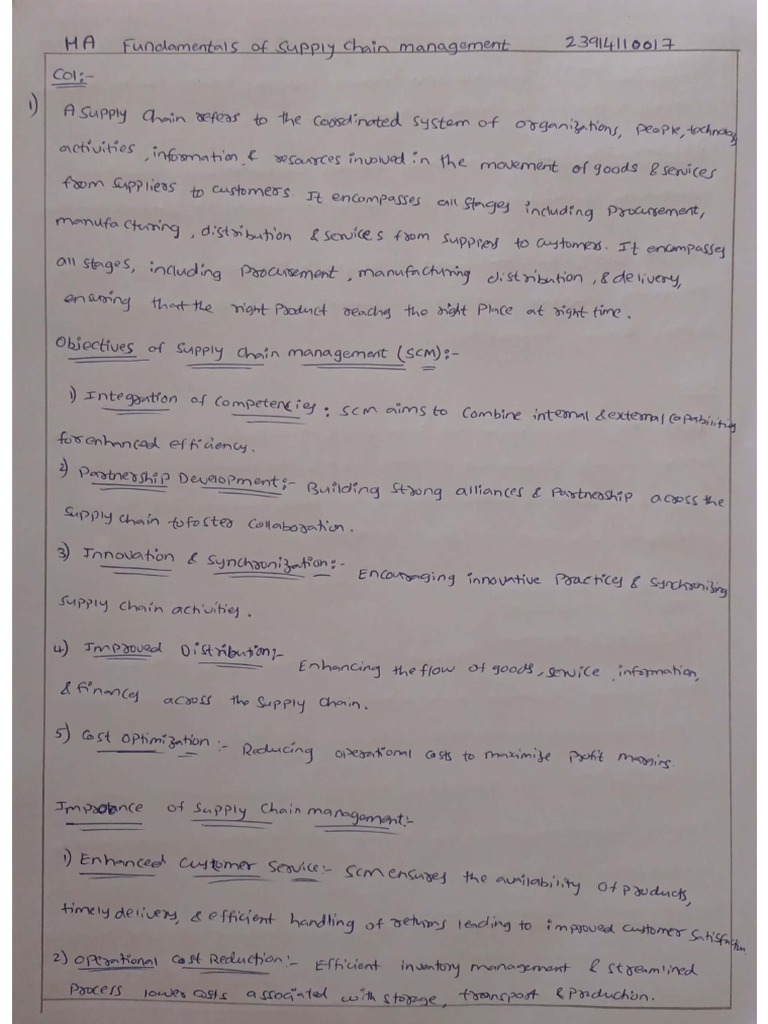 HA Fundamentals of Supply Chain management 23914110017
CO1:-
1) A Supply Chain refers to the Coordinated system of organizations, people, technology
activities, information, & resources involved in the movement of goods & services
from Suppliers to customers. It encompasses all stages including Procurement,
manufacturing, distribution & services from suppliers to customers. It encompasses
all stages, including Procurement, manufacturing distribution, & delivery,
ensuring that the right Product reaches the right Place at right time.
Objectives of Supply Chain management (SCM):-
1) Integration of Competencies: SCM aims to combine internal & external Capabilities
for enhanced efficiency.
2) Partnership Development:- Building Strong alliances & Partnership across the
Supply chain to foster Collaboration.
3) Innovation & Synchronization:- Encouraging innovative Practices & Synchronizing
Supply Chain activities.
4) Improved Distribution:- Enhancing the flow of goods, service, information,
& finances across the Supply Chain.
5) Cost Optimization:- Reducing operational costs to maximize Profit margins.
Improance of Supply Chain management:-
1) Enhanced Customer Service:- SCM ensures the availability of products,
timely delivery, & efficient handling of returns leading to improved customer satisfaction
2) Operational Cost Reduction:- Efficient inventory management & streamlined
Process lower costs associated with storage, transport & Production.